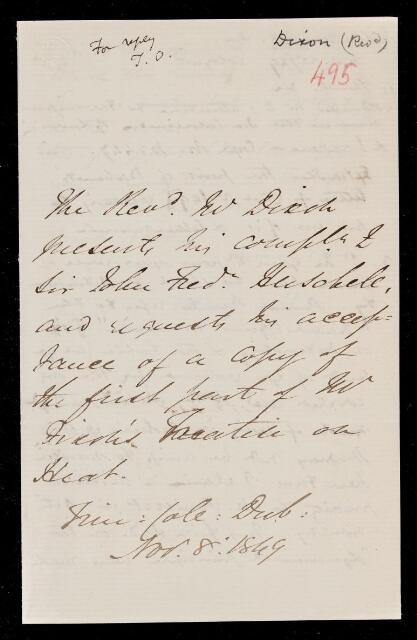 For reply
T. O.
Dixon (Revd)
495
The Revd. Mr Dixon
presents his complts to
Sir John Fredk Herschell,
and requests his accep-
tance of a copy of
the first part of Mr
Dixon's Treatise on
Heat.
Trin: Coll: Dub:
Nov. 8. 1849